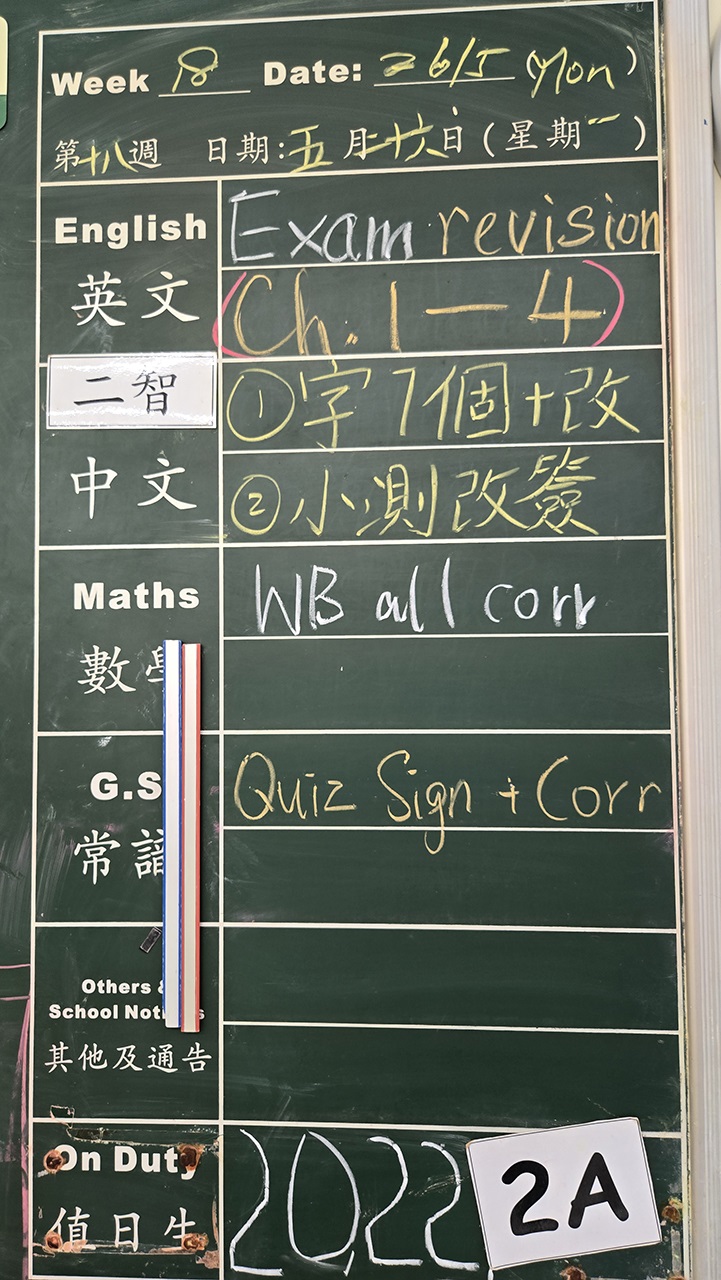 Week 18 Date: 26/5 (Mon)
第十八週 日期:五月廿六日(星期一)
English Exam revision
英文 (Ch. 1 — 4)
二智 ①字7個+改
中文 ②小測改簽
Maths WB all corr
數學
G.S Quiz Sign + Corr
常識
Others &
School Notices
其他及通告
On Duty 20,22
值日生 2A